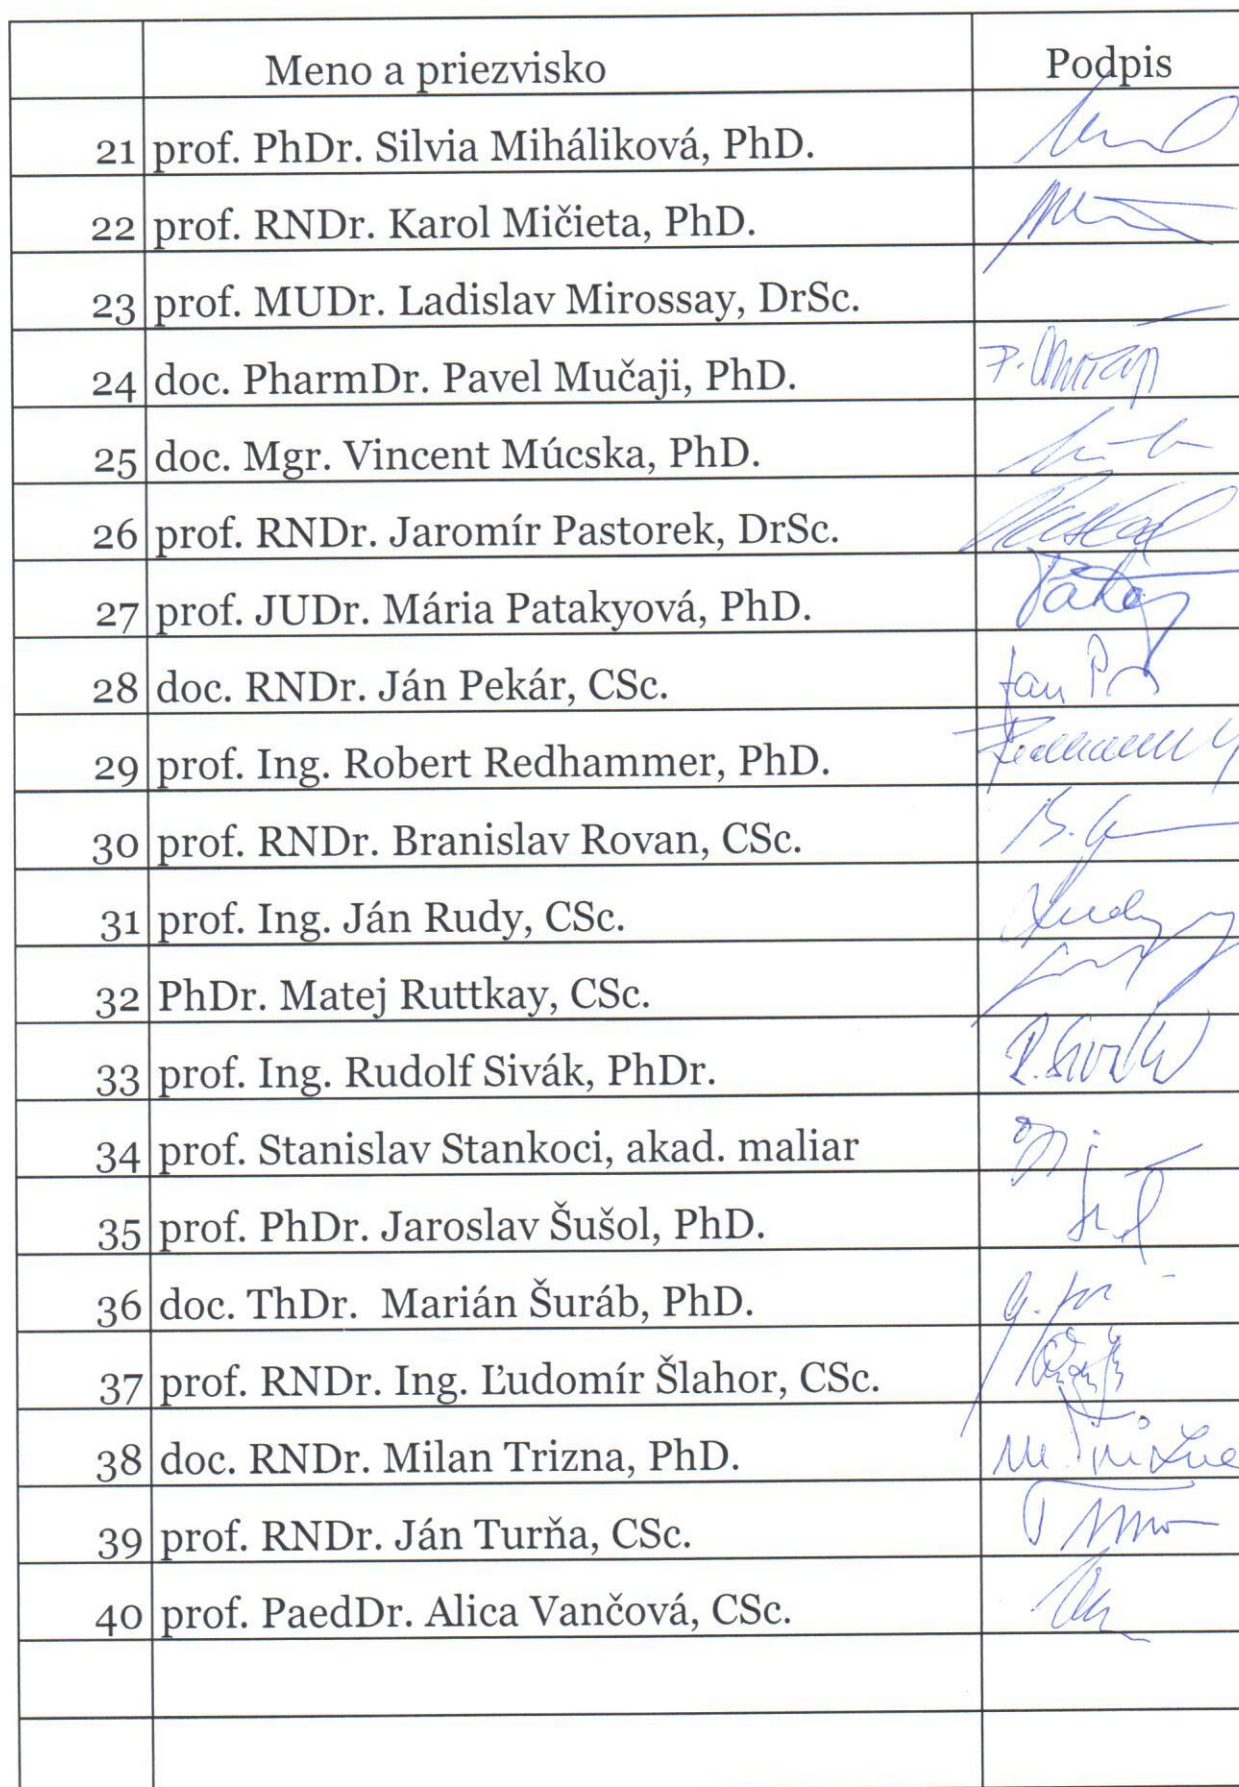 Meno a priezvisko Podpis
21 prof. PhDr. Silvia Miháliková, PhD.
22 prof. RNDr. Karol Mičieta, PhD.
23 prof. MUDr. Ladislav Mirossay, DrSc.
24 doc. PharmDr. Pavel Mučaji, PhD.
25 doc. Mgr. Vincent Múcska, PhD.
26 prof. RNDr. Jaromír Pastorek, DrSc.
27 prof. JUDr. Mária Patakyová, PhD.
28 doc. RNDr. Ján Pekár, CSc.
29 prof. Ing. Robert Redhammer, PhD.
30 prof. RNDr. Branislav Rovan, CSc.
31 prof. Ing. Ján Rudy, CSc.
32 PhDr. Matej Ruttkay, CSc.
33 prof. Ing. Rudolf Sivák, PhDr.
34 prof. Stanislav Stankoci, akad. maliar
35 prof. PhDr. Jaroslav Šušol, PhD.
36 doc. ThDr. Marián Šuráb, PhD.
37 prof. RNDr. Ing. Ľudomír Šlahor, CSc.
38 doc. RNDr. Milan Trizna, PhD.
39 prof. RNDr. Ján Turňa, CSc.
40 prof. PaedDr. Alica Vančová, CSc.